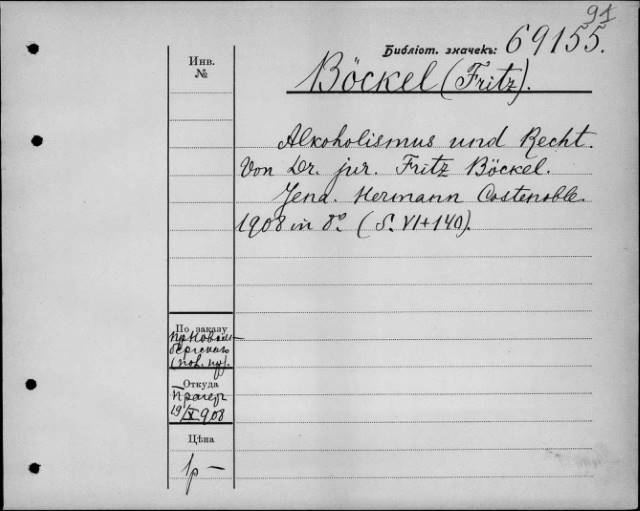 91
Библіот. значекъ: 69155.
Инв.
№
Böckel (Fritz).
Alkoholismus und Recht.
Von Dr. jur. Fritz Böckel.
Jena. Hermann Costenoble.
1908 in 8º. (S. VI+140).
По заказу
Откуда
Прагеръ
19/X 908
Цѣна
1р —